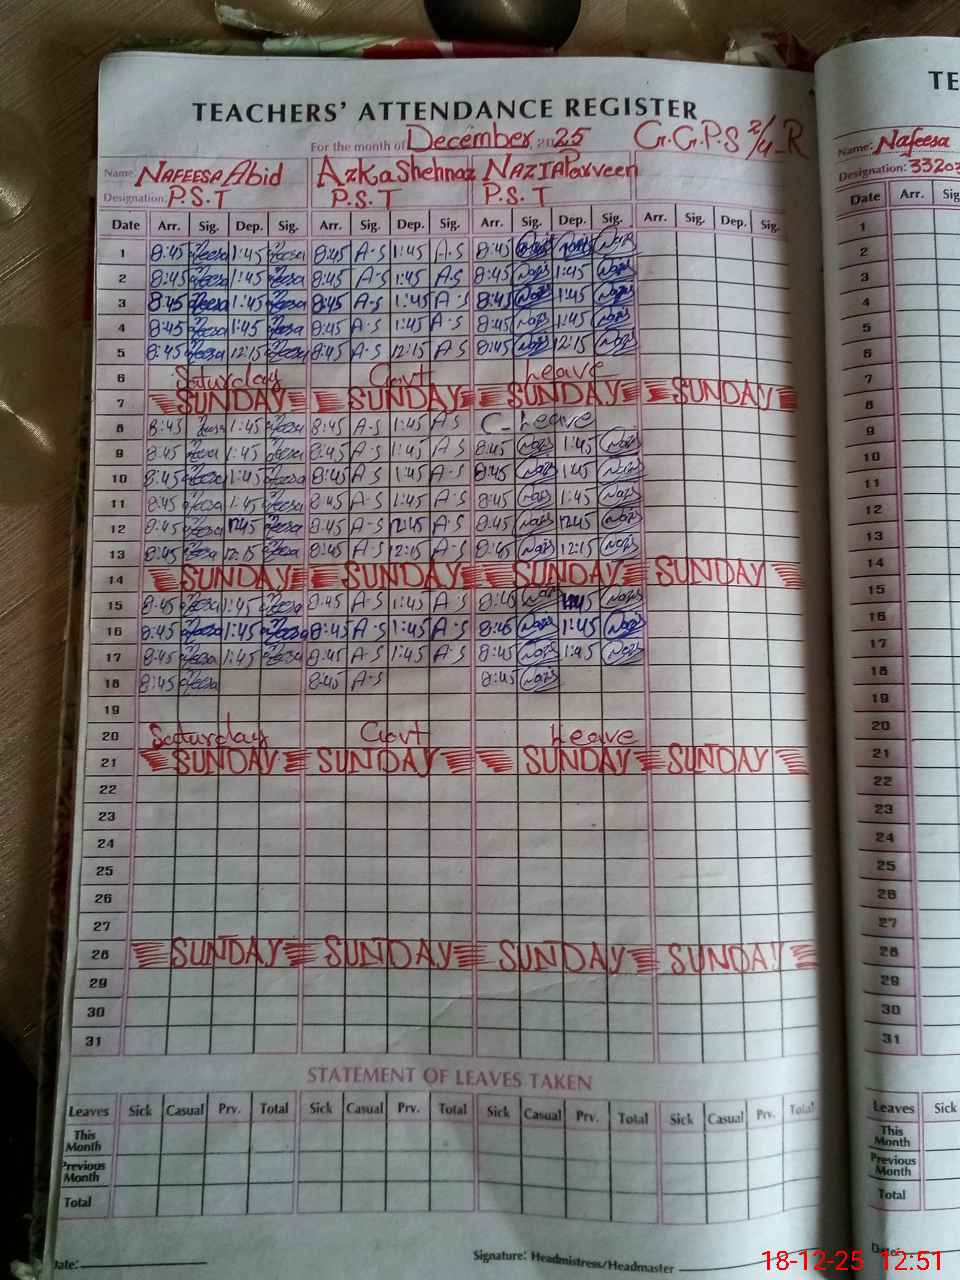 TEACHERS' ATTENDANCE REGISTER
For the month of December, 2025 G.G.P.S 2/4-R
Name: NAFEESA Abid Azka Shehnaz NAZIA Parveen
Designation: P.S.T P.S.T P.S.T
Date Arr. Sig. Dep. Sig. Arr. Sig. Dep. Sig. Arr. Sig. Dep. Sig. Arr. Sig. Dep. Sig.
1 8:45 1:45 8:45 A-S 1:45 A-S 8:45
2 8:45 1:45 8:45 A-S 1:45 A-S 8:45 1:45
3 8:45 1:45 8:45 A-S 1:45 A-S 8:45 1:45
4 8:45 1:45 8:45 A-S 1:45 A-S 8:45 1:45
5 8:45 12:15 8:45 A-S 12:15 A-S 8:45 12:15
6 Saturday Govt Leave
7 SUNDAY SUNDAY SUNDAY SUNDAY
8 8:45 1:45 8:45 A-S 1:45 A-S C-Leave
9 8:45 1:45 8:45 A-S 1:45 A-S 8:45 1:45
10 8:45 1:45 8:45 A-S 1:45 A-S 8:45 1:45
11 8:45 1:45 8:45 A-S 1:45 A-S 8:45 1:45
12 8:45 8:45 A-S A-S 8:45
13 8:45 12:15 8:45 A-S 12:15 A-S 8:45 12:15
14 SUNDAY SUNDAY SUNDAY SUNDAY
15 8:45 1:45 8:45 A-S 1:45 A-S 8:45
16 8:45 1:45 8:45 A-S 1:45 A-S 8:45 1:45
17 8:45 1:45 8:45 A-S 1:45 A-S 8:45 1:45
18 8:45 8:45 A-S 8:45
19
20 Saturday Govt Leave
21 SUNDAY SUNDAY SUNDAY SUNDAY
22
23
24
25
26
27
28 SUNDAY SUNDAY SUNDAY SUNDAY
29
30
31
STATEMENT OF LEAVES TAKEN
Leaves Sick Casual Prv. Total Sick Casual Prv. Total Sick Casual Prv. Total Sick Casual Prv. Total
This Month
Previous Month
Total
Date: Signature: Headmistress/Headmaster
TE
Name: Nafeesa
Designation: 33203
Date Arr. Sig
1
2
3
4
5
6
7
8
9
10
11
12
13
14
15
16
17
18
19
20
21
22
23
24
25
26
27
28
29
30
31
Leaves Sick
This Month
Previous Month
Total
Date:
18-12-25 12:51